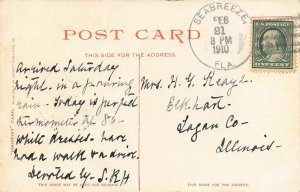 POST CARD
THIS SIDE FOR THE ADDRESS.
SEABREEZE,
FEB
21
8 PM
1910
FLA.
ONE CENT
Arrived Saturday
night. in a pouring
rain - Today is perfect
thermometer at 80 -
White dresses - have
had a walk & a drive.
Devotedly - S.R.H
Mrs. H. G. Keays
Elkhart
Logan Co -
Illinois -
THIS SPACE MAY BE USED FOR MESSAGE.
THIS SPACE IS FOR THE ADDRESS ONLY.